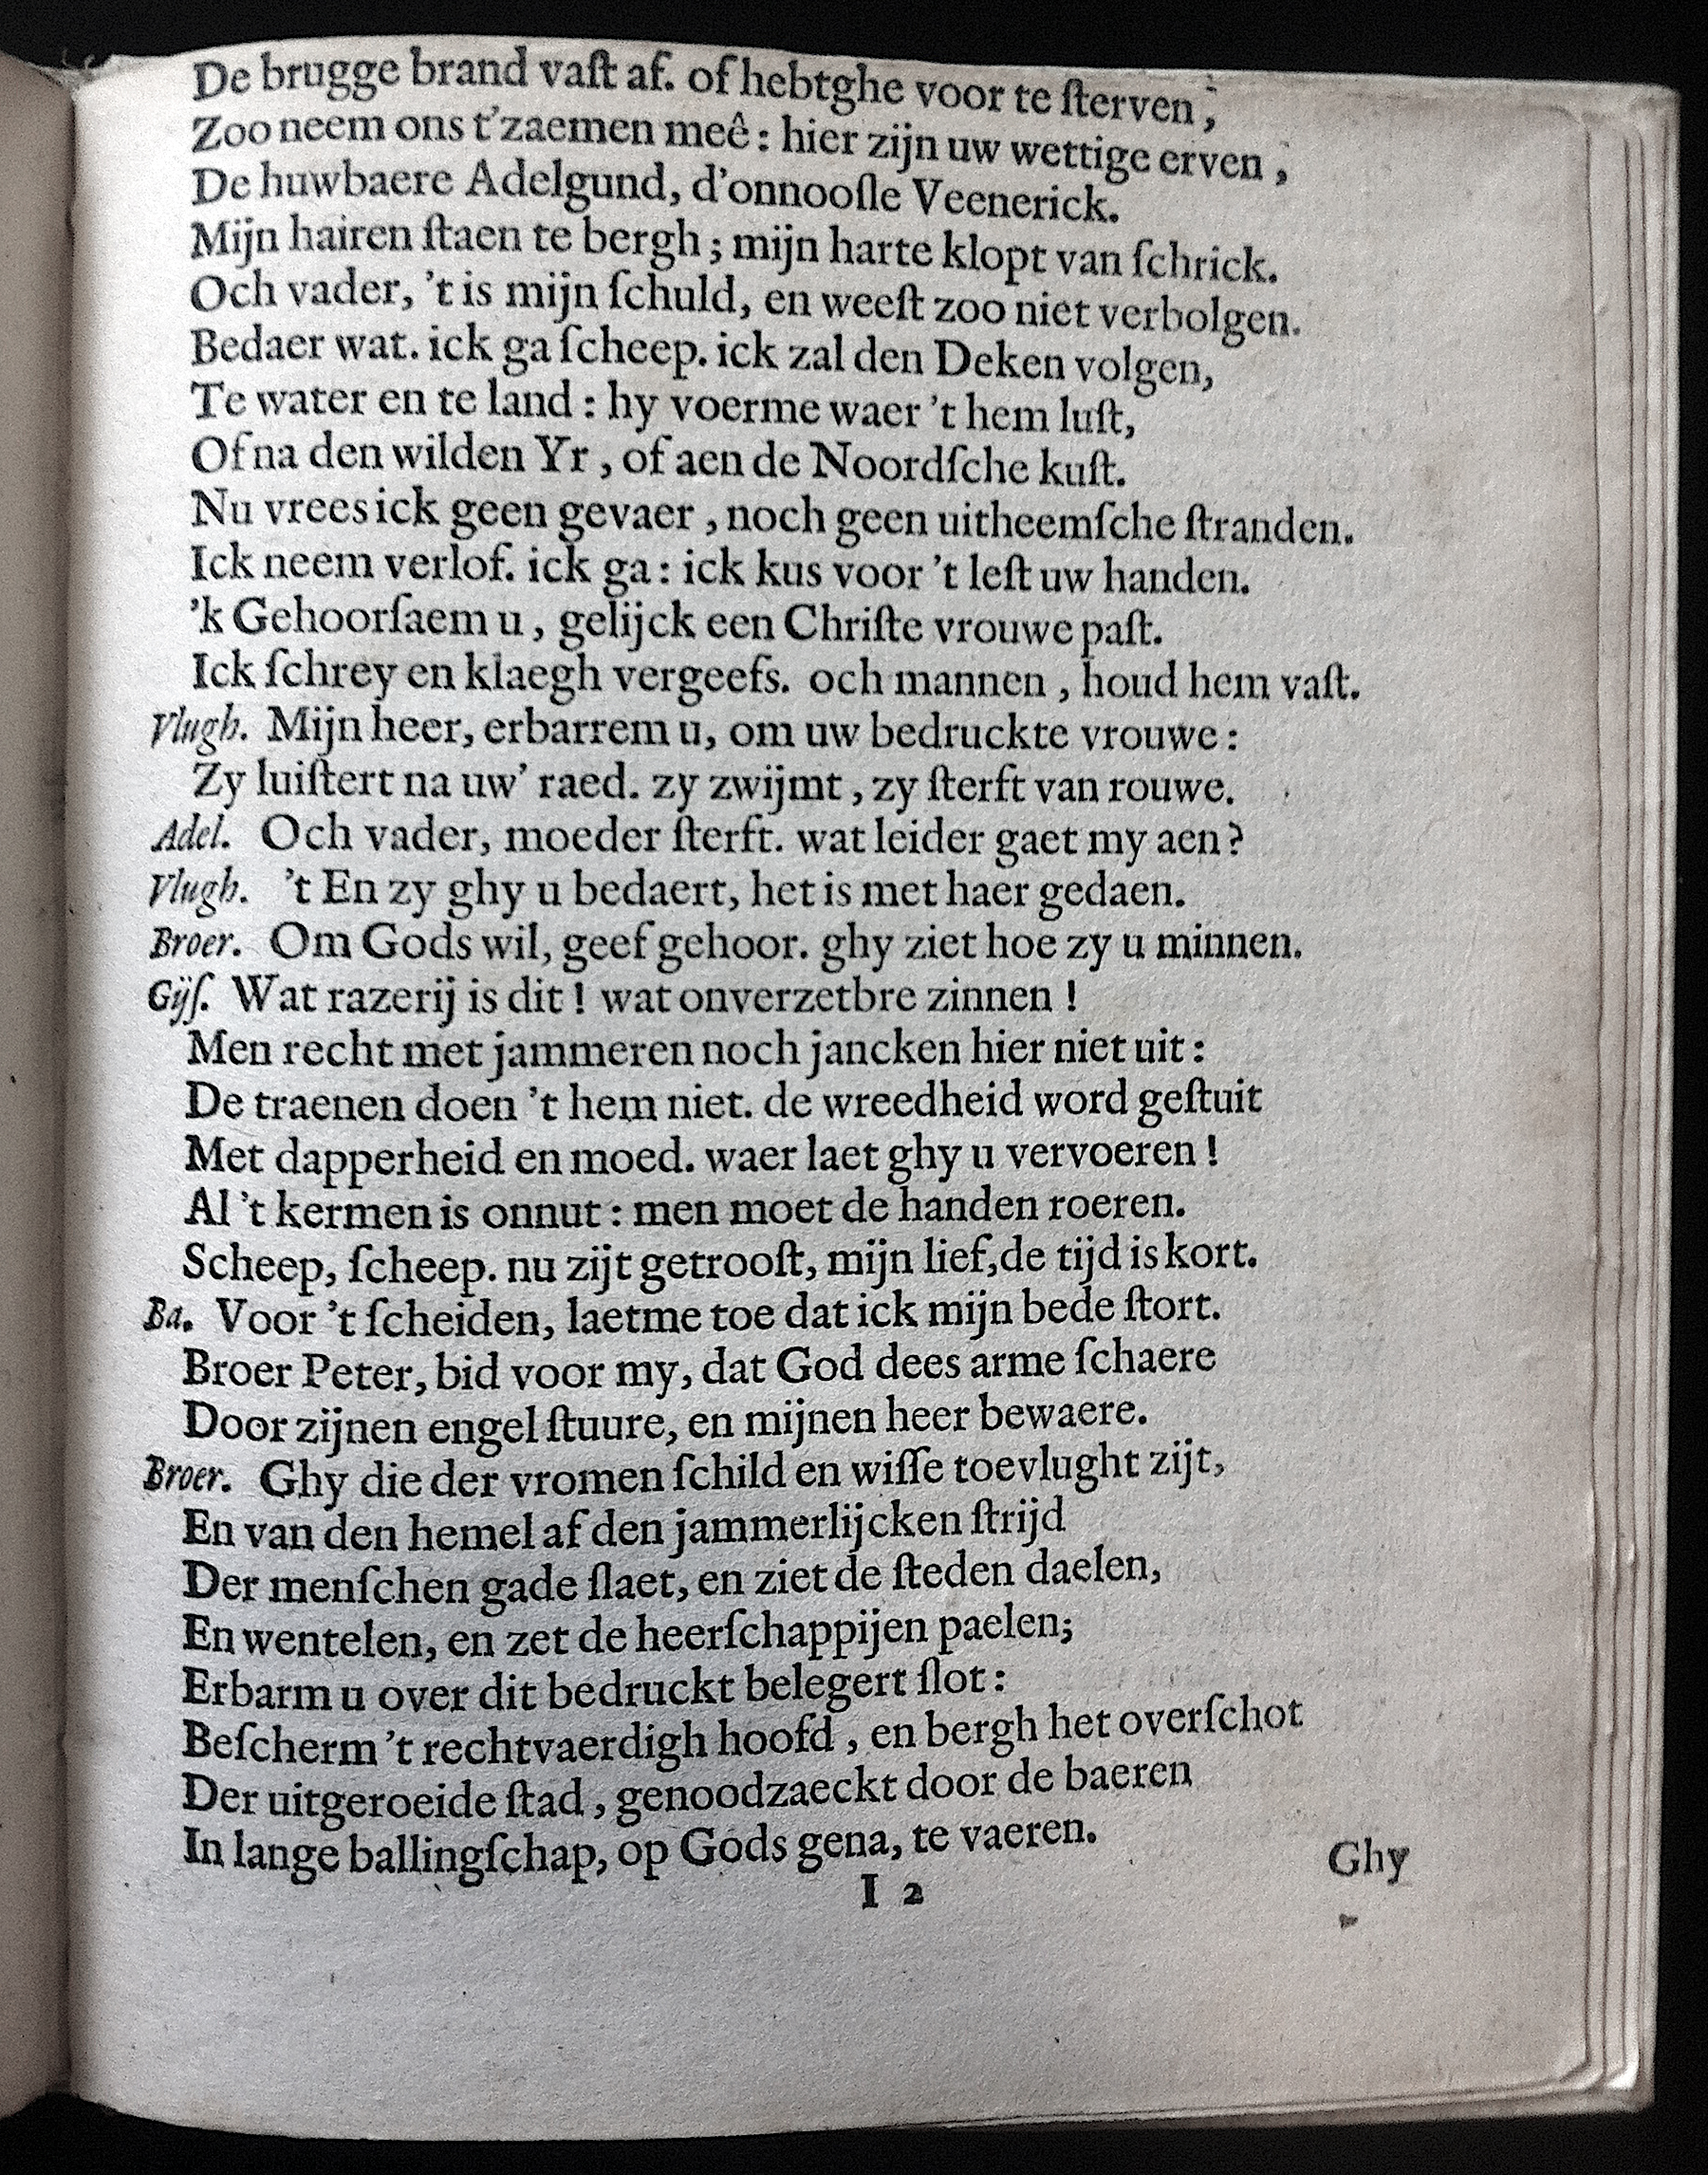 De brugge brand vaſt af. of hebtghe voor te ſterven,
Zoo neem ons t'zaemen meê: hier zijn uw wettige erven,
De huwbaere Adelgund, d'onnooſle Veenerick.
Mijn hairen ſtaen te bergh; mijn harte klopt van ſchrick.
Och vader, 't is mijn ſchuld, en weeſt zoo niet verbolgen.
Bedaer wat. ick ga ſcheep. ick zal den Deken volgen,
Te water en te land: hy voerme waer 't hem luſt,
Of na den wilden Yr, of aen de Noordſche kuſt.
Nu vrees ick geen gevaer, noch geen uitheemſche ſtranden.
Ick neem verlof. ick ga: ick kus voor 't leſt uw handen.
'k Gehoorſaem u, gelijck een Chriſte vrouwe paſt.
Ick ſchrey en klaegh vergeefs. och mannen, houd hem vaſt.
Vlugh. Mijn heer, erbarrem u, om uw bedruckte vrouwe:
Zy luiſtert na uw' raed. zy zwijmt, zy ſterft van rouwe.
Adel. Och vader, moeder ſterft. wat leider gaet my aen?
Vlugh. 't En zy ghy u bedaert, het is met haer gedaen.
Broer. Om Gods wil, geef gehoor. ghy ziet hoe zy u minnen.
Gijſ. Wat razerij is dit! wat onverzetbre zinnen!
Men recht met jammeren noch jancken hier niet uit:
De traenen doen 't hem niet. de wreedheid word geſtuit
Met dapperheid en moed. waer laet ghy u vervoeren!
Al 't kermen is onnut: men moet de handen roeren.
Scheep, ſcheep. nu zijt getrooſt, mijn lief, de tijd is kort.
Ba. Voor 't ſcheiden, laetme toe dat ick mijn bede ſtort.
Broer Peter, bid voor my, dat God dees arme ſchaere
Door zijnen engel ſtuure, en mijnen heer bewaere.
Broer. Ghy die der vromen ſchild en wiſſe toevlught zijt,
En van den hemel af den jammerlijcken ſtrijd
Der menſchen gade ſlaet, en ziet de ſteden daelen,
En wentelen, en zet de heerſchappijen paelen;
Erbarm u over dit bedruckt belegert ſlot:
Beſcherm 't rechtvaerdigh hoofd, en bergh het overſchot
Der uitgeroeide ſtad, genoodzaeckt door de baeren
In lange ballingſchap, op Gods gena, te vaeren.
I 2
Ghy